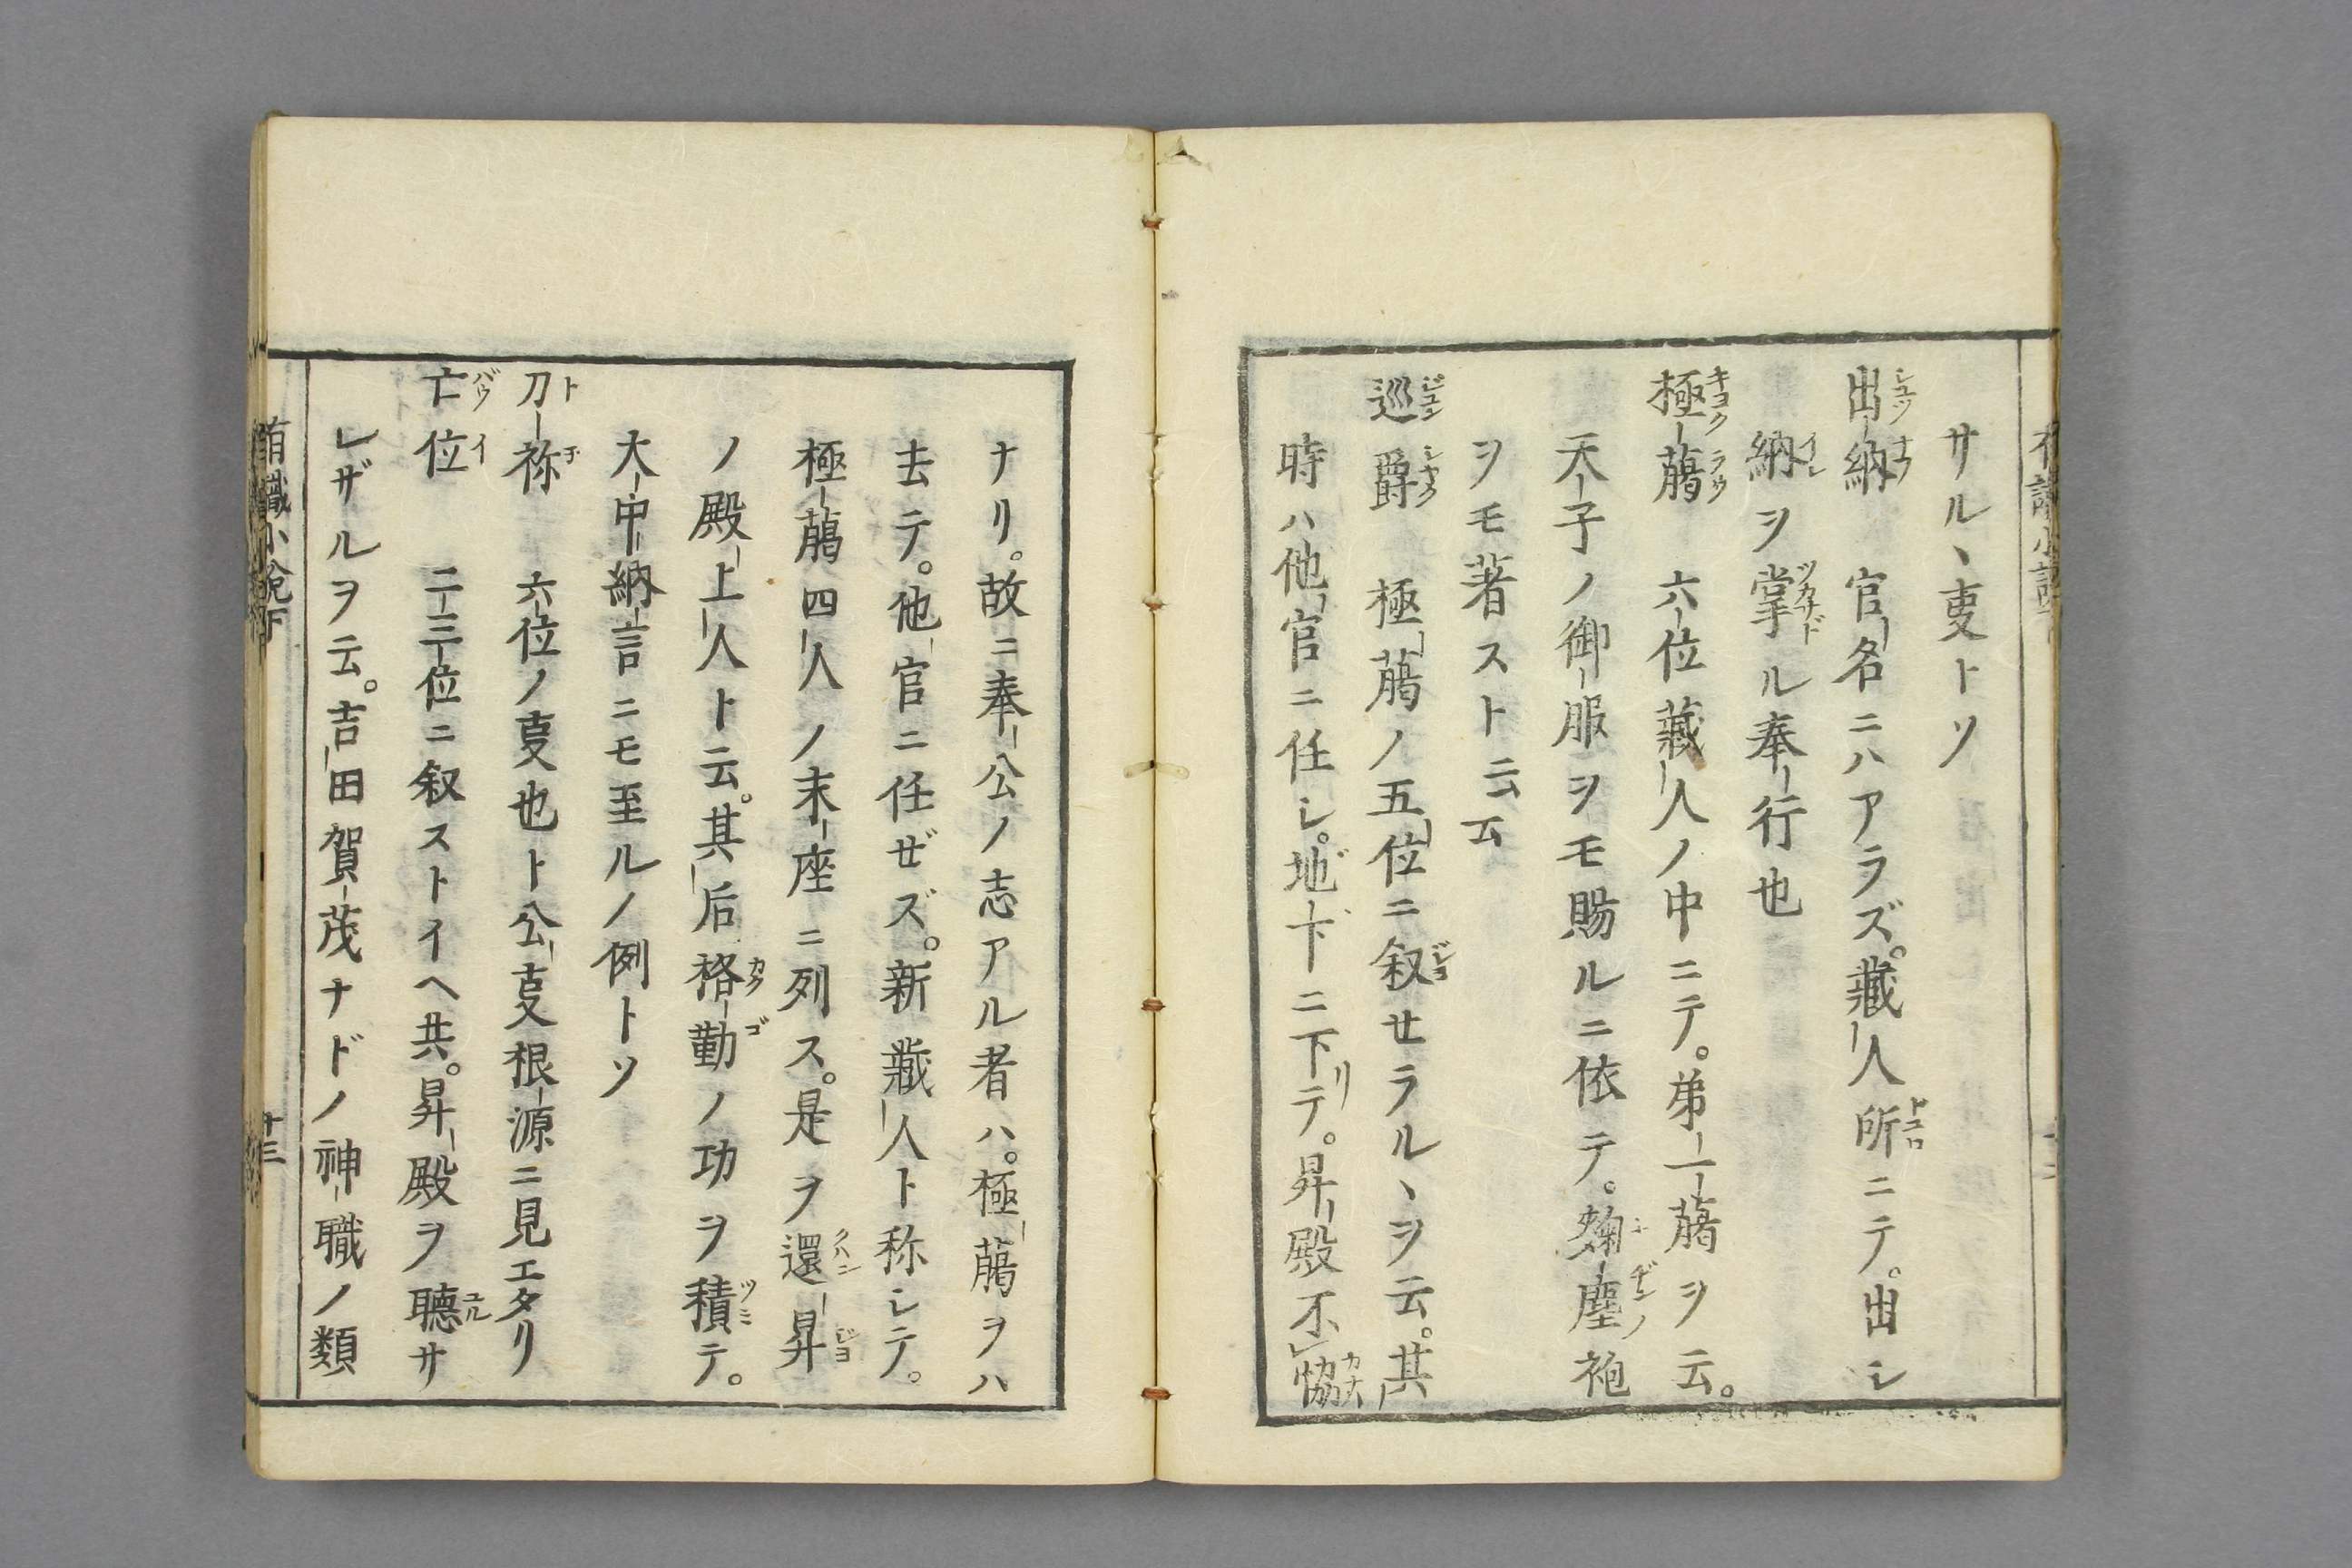 サルヽ叓トソ
出納 官名ニハアラズ。藏人所ニテ。出シ
納ヲ掌ル奉行也
極﨟 六位藏人ノ中ニテ。弟一﨟ヲ云。
天子ノ御服ヲモ賜ルニ依テ。麹塵袍
ヲモ著ストニ云
巡爵 極﨟ノ五位ニ叙セラルヽヲ云。其
時ハ他官ニ任シ。地下ニ下リテ。昇殿不協
ナリ。故ニ奉公ノ志アル者ハ。極﨟ヲハ
去テ。他官ニ任ゼズ。新藏人ト称シテ。
極﨟四人ノ末座ニ列ス。是ヲ還昇
ノ殿上人ト云。其后格勤ノ功ヲ積テ。
大中納言ニモ至ルノ例トソ
刀祢 六位ノ叓也ト公叓根源ニ見エタリ
亡位 二三位ニ叙ストイヘ共。昇殿ヲ聴サ
レザルヲ云。吉田賀茂ナドノ神職ノ類
有職小說下
十三